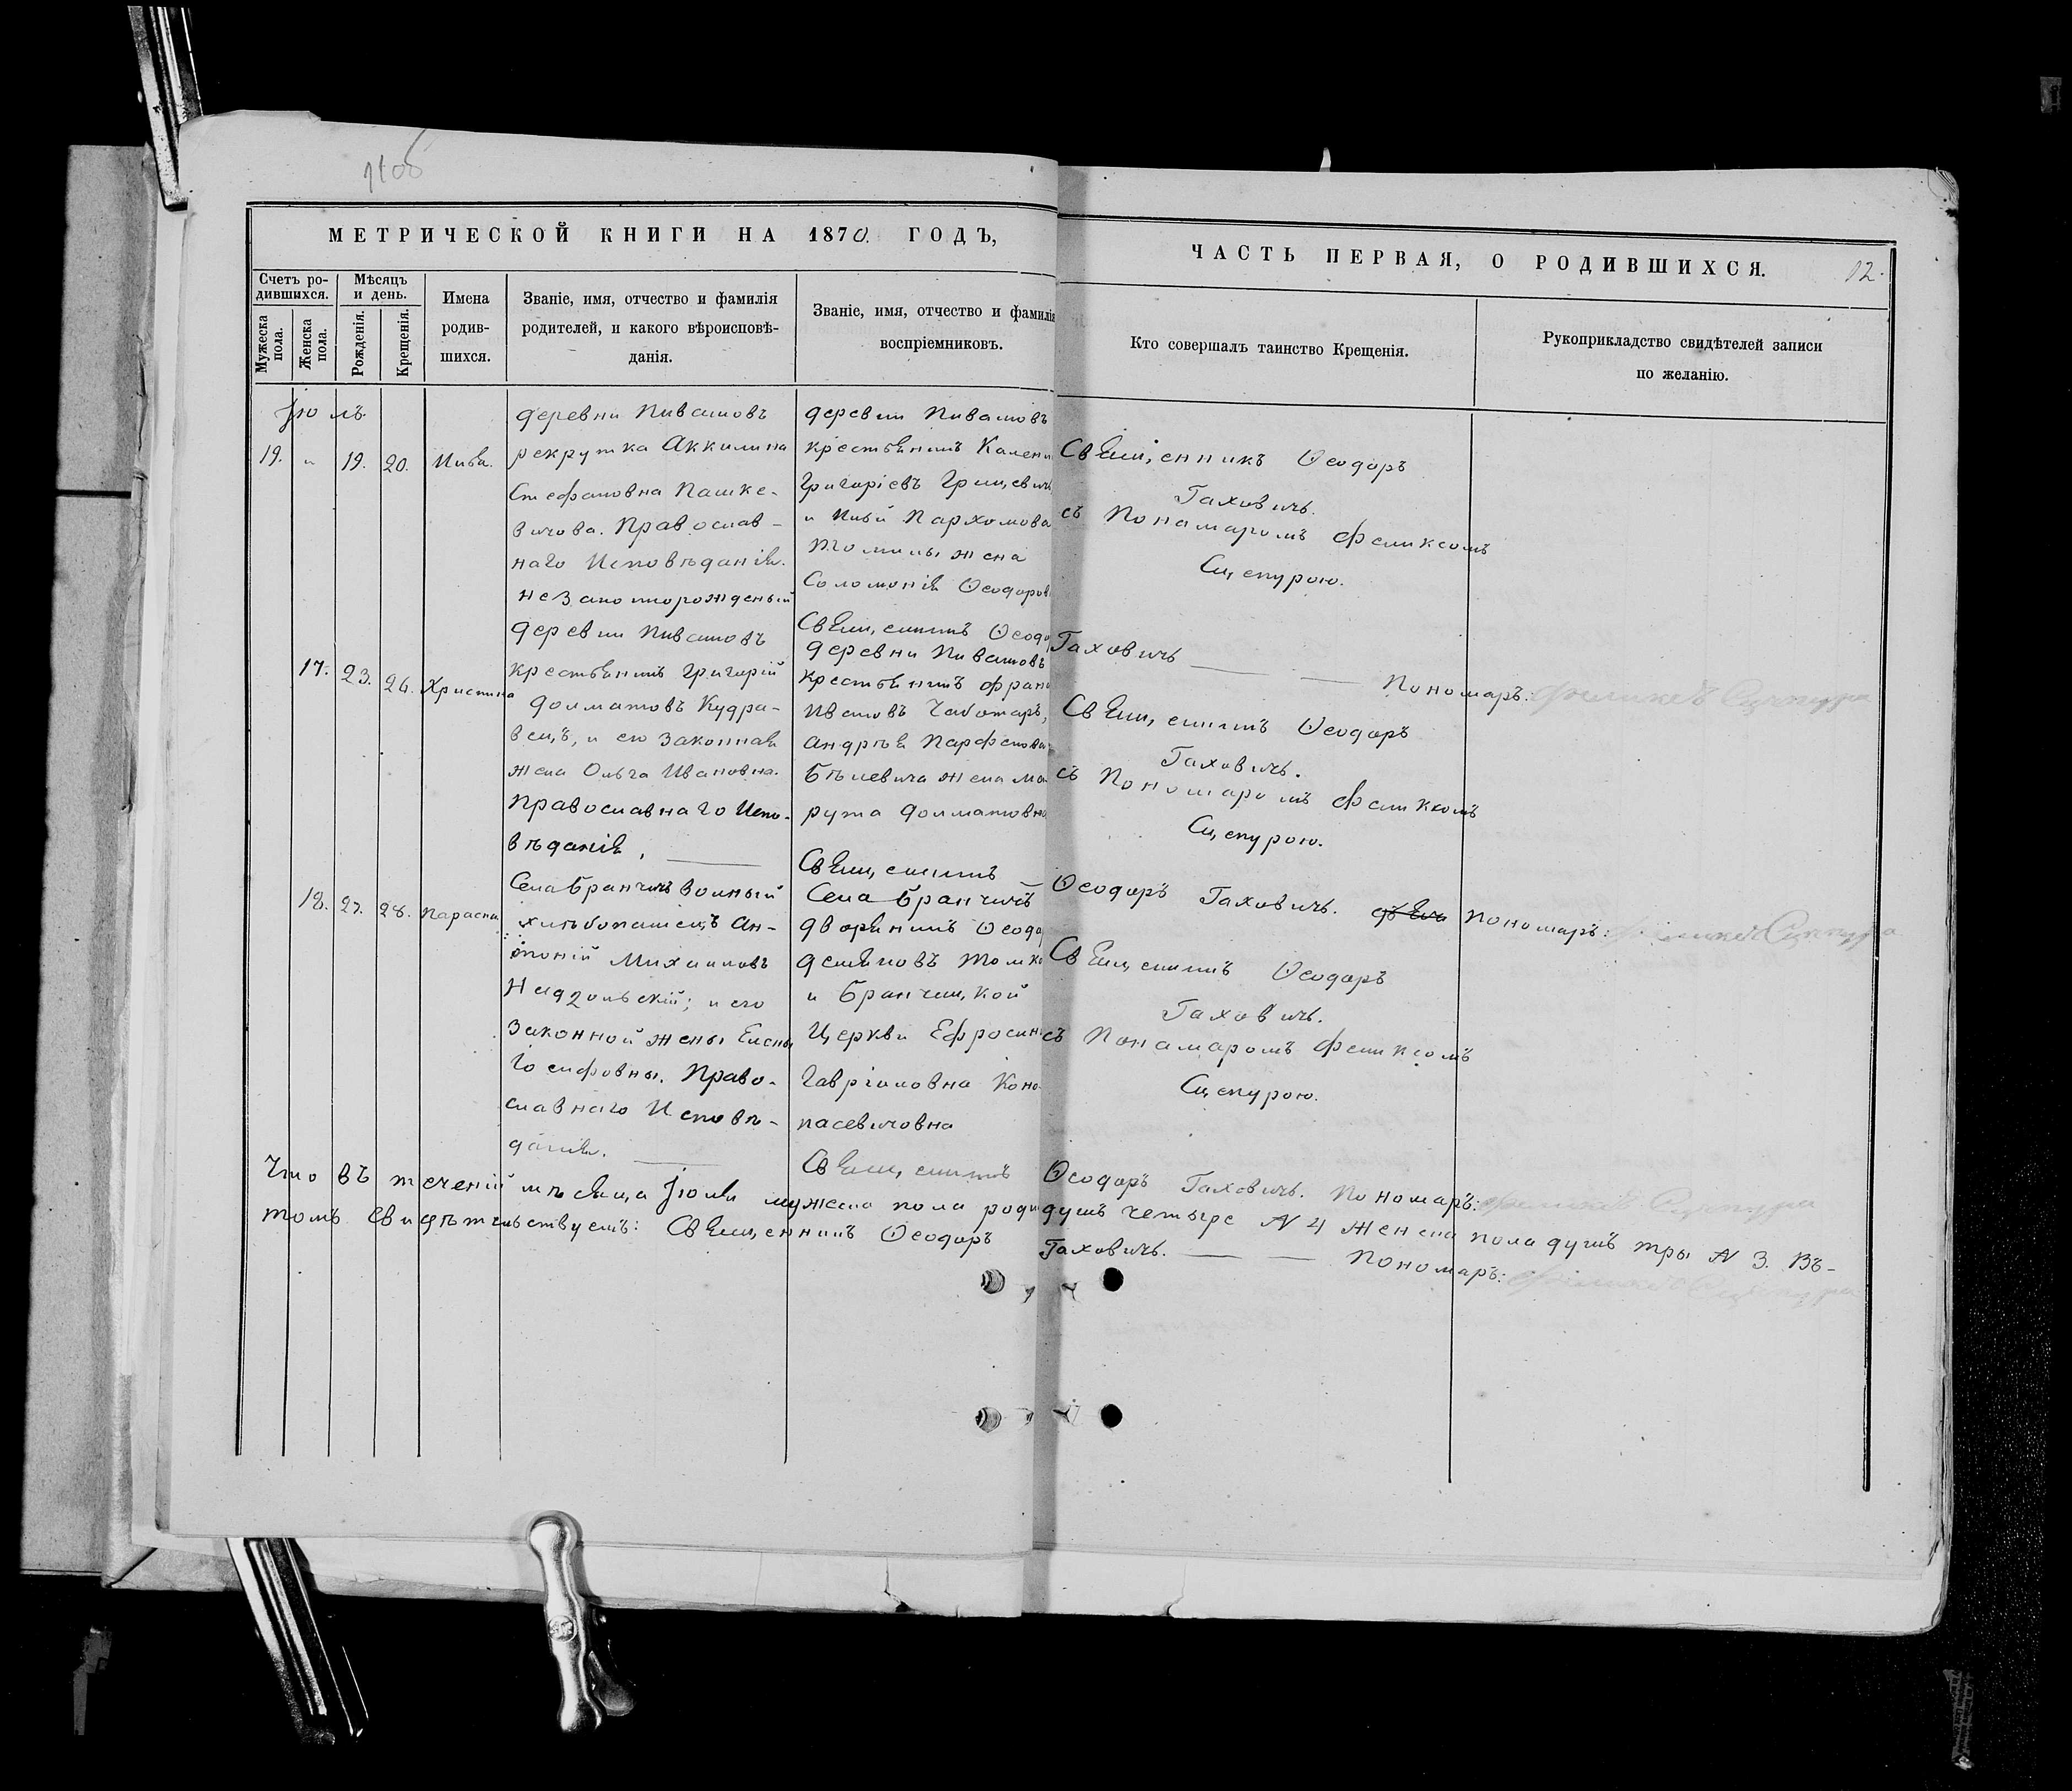 11об
МЕТРИЧЕСКОЙ КНИГИ НА 1870. ГОДЪ,
ЧАСТЬ ПЕРВАЯ, О РОДИВШИХСЯ.
12.
Счетъ ро-
дившихся.
Мужеска пола.
Женска пола.
Мѣсяцъ
и день.
Рожденія.
Крещенія.
Имена
родив-
шихся.
Званіе, имя, отчество и фамилія
родителей, и какого вѣроисповѣ-
данія.
Званіе, имя, отчество и фамилія
воспріемниковъ.
Кто совершалъ таинство Крещенія.
Рукоприкладство свидѣтелей записи
по желанію.
Іюль.
19. " 19. 20. Илья.
деревни Пивашовъ
рекрутка Аккилина
Стефановна Пашке-
вичова. Православ-
наго Исповѣданія.
незаконнорожденый
деревни Пивашовъ
крестьянинъ Калени
Григоріевъ Грицевичъ
и Ильи Пархомова
Томилы жена
Соломонія Ѳеодоров
Священникъ Ѳеодоръ
Таховичъ.
съ Понамаромъ Феликсомъ
Сцепурою.
Священникъ Ѳеодо
Таховичъ — — Пономаръ: Феликсъ Сцепура
17. 23. 26. Христина
деревни Пивашовъ
крестьянинъ Григорій
Долматовъ Кудра-
вецъ, и его законная
жена Ольга Ивановна.
Православнаго Испо-
вѣданія, —
деревни Пивашовъ
крестьянинъ Фран
Ивановъ Чаботаръ,
Андрѣя Парфенова
Бѣлевича жена Ма
рута Долматовна
Священникъ Ѳеодоръ
Таховичъ.
съ Пономаромъ Феликсомъ
Сцепурою.
Священникъ —
Ѳеодоръ Таховичъ. Пономаръ: Феликсъ Сцепура
18. 27. 28. Параска
Села Бранчичъ вольный
хлѣбопашецъ Ан-
тоній Михаиловъ
Недзольскій; и его
законной жены Елены
Іосифовны. Право-
славнаго Исповѣ-
данія. —
Села Бранчичъ
дворянинъ Ѳеодо
Демяновъ Томко
и Бранчицкой
Церкви Ефросини
Гавріиловна Коно
пасевичовна
Священникъ Ѳеодоръ
Таховичъ.
съ Понамаромъ Феликсомъ
Сцепурою.
Священникъ Ѳеодоръ Таховичъ. Пономаръ: Феликсъ Сцепура
Что въ теченій мѣсяца Іюля мужска пола роди душъ четыре N 4 женска пола душъ тры N 3. Въ-
томъ свидѣтельствуемъ: Священникъ Ѳеодоръ Таховичъ. — — Пономаръ: Феликсъ Сцепура